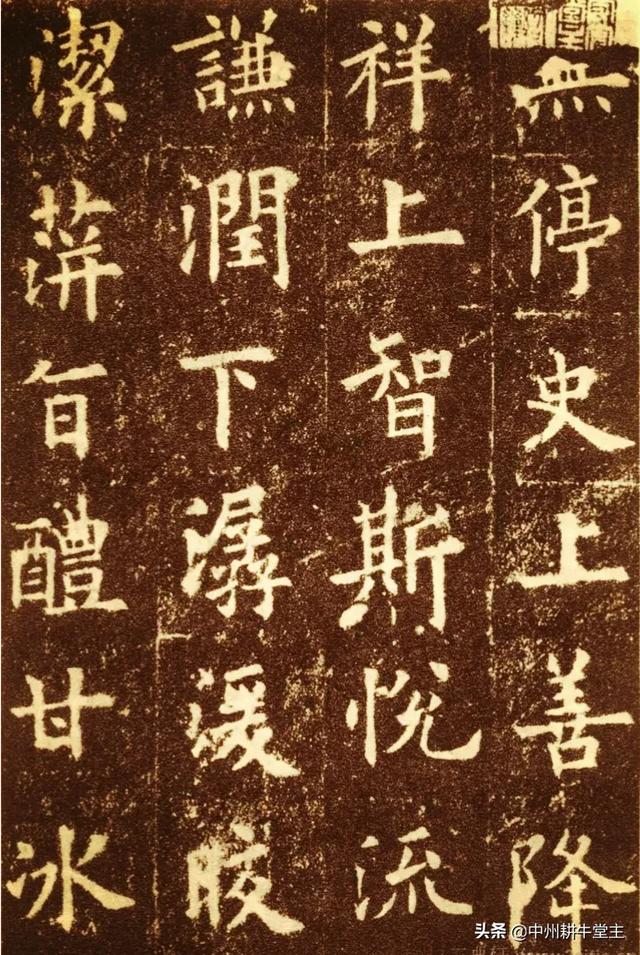 無停史上善降
祥上智斯悅流
謙潤下潺湲皎
潔蓱旨醴甘冰
头条 @中州耕牛堂主